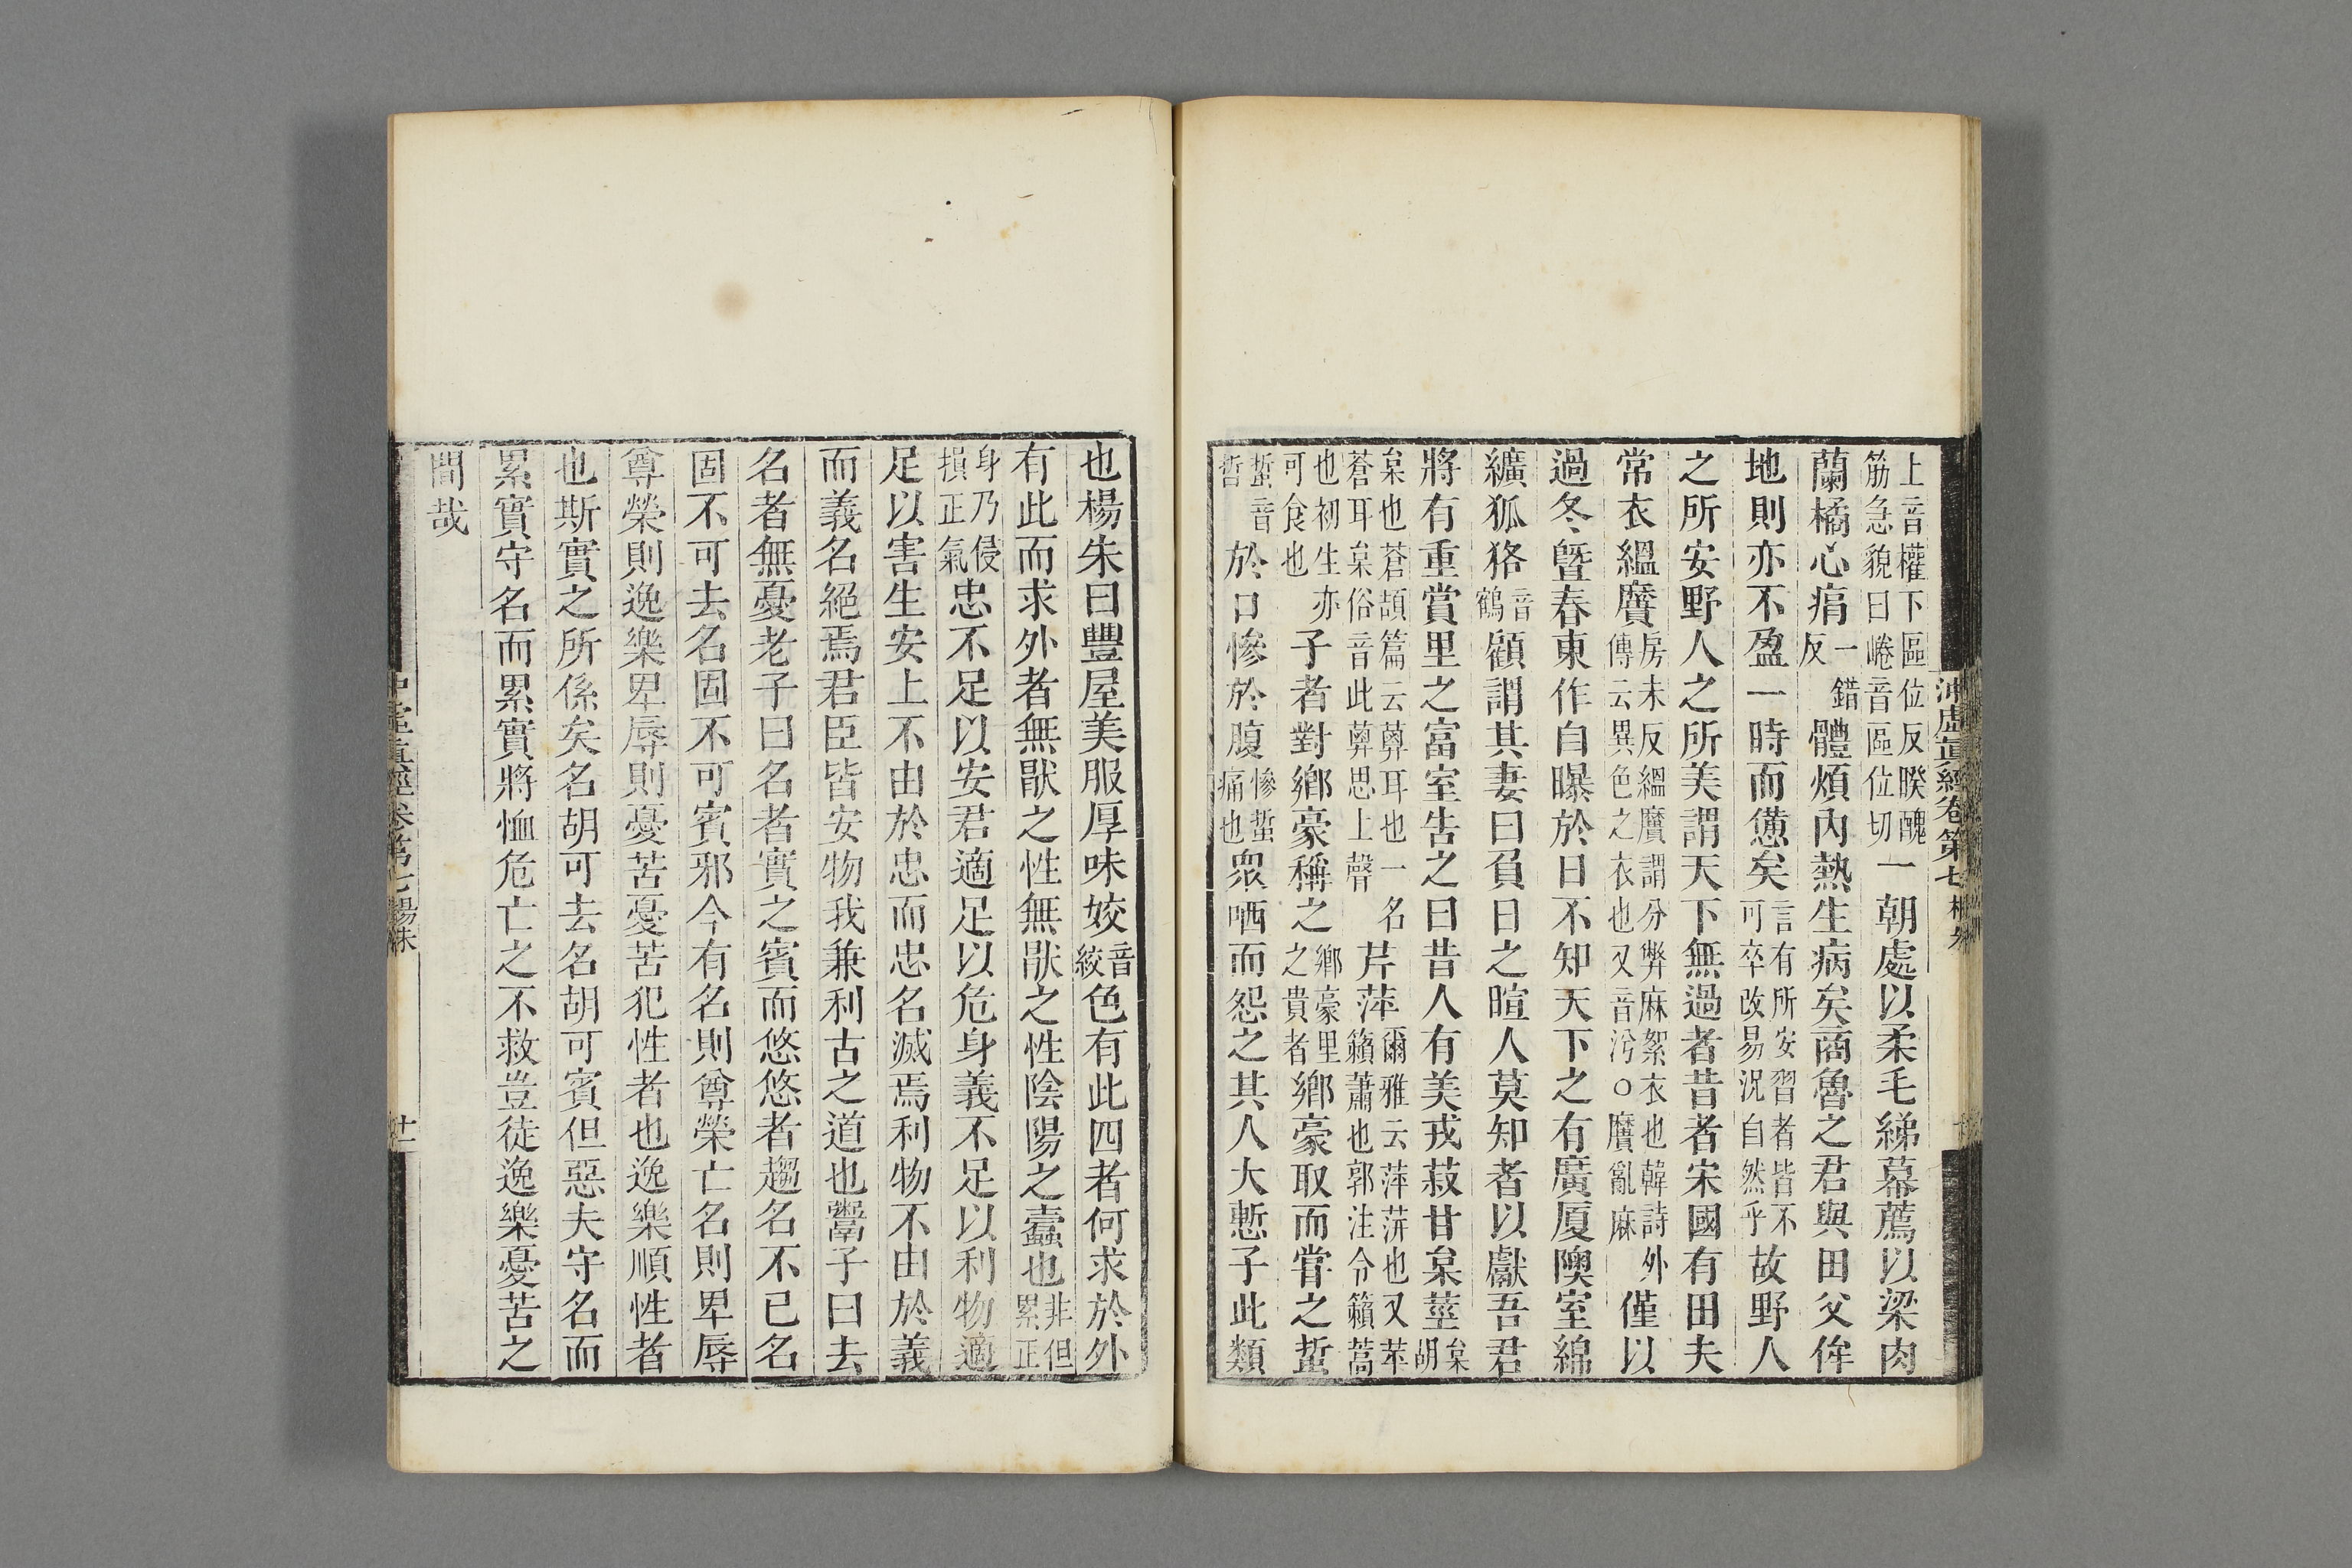 沖虛眞經卷第七
上音權下區位反睽醜筋急貌曰峮音區位切一朝處以柔毛綈幕薦以梁肉
蘭橘心痟一錯反體煩內熱生病矣商魯之君與田父侔
地則亦不盈一時而憊矣言有所安習者皆不可卒改易況自然乎故野人
之所安野人之所美謂天下無過者昔者宋國有田夫
常衣縕黂房未反縕黂謂分弊麻絮衣也韓詩外傳云異色之衣也又音汾○黂亂麻僅以
過冬暨春東作自曝於日不知天下之有廣厦隩室綿
纊狐狢音鶴顧謂其妻曰負日之暄人莫知者以獻吾君
將有重賞里之富室告之曰昔人有美戎菽甘枲莖枲胡
枲也蒼頡篇云蓱耳也一名蒼耳枲俗音此蓱思上聲芹萍爾雅云萍蓱也又苹籟蕭也郭注今籟蒿
也初生亦可食也子者對鄉豪稱之鄉豪里之貴者鄉豪取而嘗之蜇
蜇音哲於口慘於腹慘蜇痛也衆哂而怨之其人大慙子此類
也楊朱曰豐屋美服厚味姣音絞色有此四者何求於外
有此而求外者無猒之性無猒之性陰陽之蠹也非但累正
身乃侵損正氣忠不足以安君適足以危身義不足以利物適
足以害生安上不由於忠而忠名滅焉利物不由於義
而義名絕焉君臣皆安物我兼利古之道也鬻子曰去
名者無憂老子曰名者實之賓而悠悠者趨名不已名
固不可去名固不可賓邪今有名則尊榮亡名則卑辱
尊榮則逸樂卑辱則憂苦憂苦犯性者也逸樂順性者
也斯實之所係矣名胡可去名胡可賓但惡夫守名而
累實守名而累實將恤危亡之不救豈徒逸樂憂苦之
間哉
中虛眞經卷第七楊朱 廿一